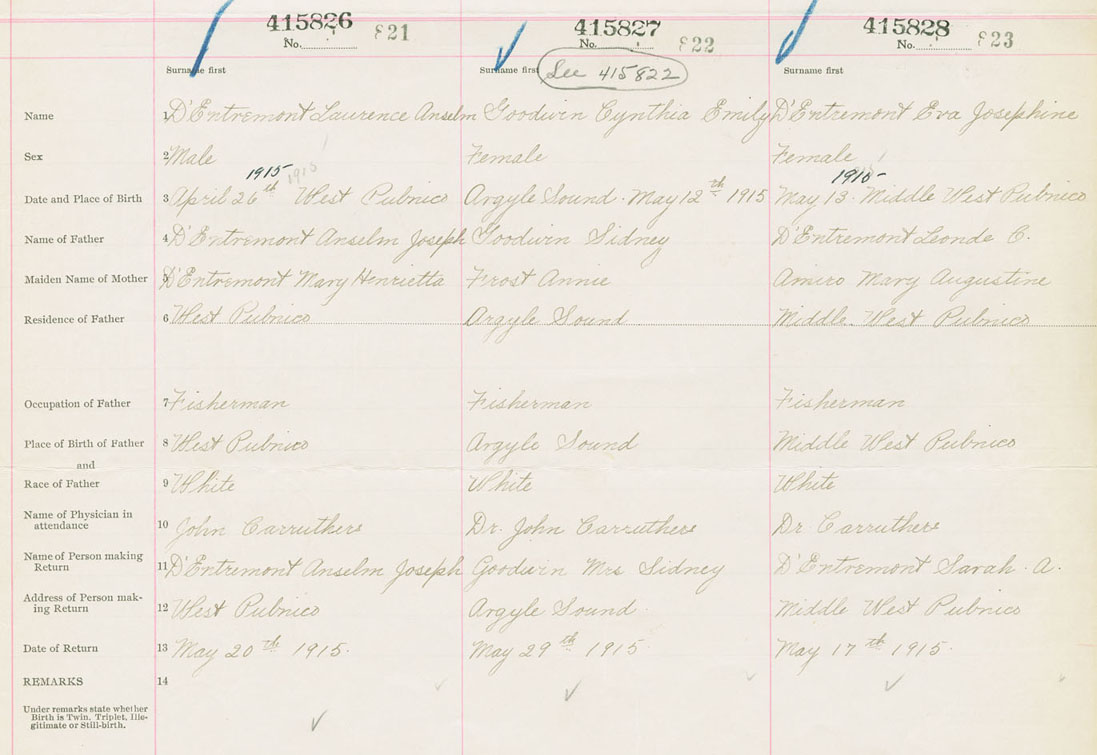 415826 821 415827 822 415828 823
No. No. No.
Surname first Surname first See 415822 Surname first
Name 1 D'Entremont Laurence Anselm Goodwin Cynthia Emily D'Entremont Eva Josephine
Sex 2 Male Female Female
1915 1915 1915
Date and Place of Birth 3 April 26th West Pubnico Argyle Sound. May 12th 1915 May 13. Middle West Pubnico
Name of Father 4 D'Entremont Anselm Joseph Goodwin Sidney D'Entremont Leonde C.
Maiden Name of Mother 5 D'Entremont Mary Henrietta Frost Annie Amiro Mary Augustine
Residence of Father 6 West Pubnico Argyle Sound Middle West Pubnico
Occupation of Father 7 Fisherman Fisherman Fisherman
Place of Birth of Father 8 West Pubnico Argyle Sound Middle West Pubnico
and
Race of Father 9 White White White
Name of Physician in
attendance 10 John Carruthers Dr. John Carruthers Dr. Carruthers
Name of Person making
Return 11 D'Entremont Anselm Joseph Goodwin Mrs Sidney D'Entremont Sarah. A.
Address of Person mak-
ing Return 12 West Pubnico Argyle Sound Middle West Pubnico
Date of Return 13 May 20th 1915. May 29th 1915 May 17th 1915.
REMARKS 14
Under remarks state whether
Birth is Twin, Triplet, Ille-
gitimate or Still-birth.